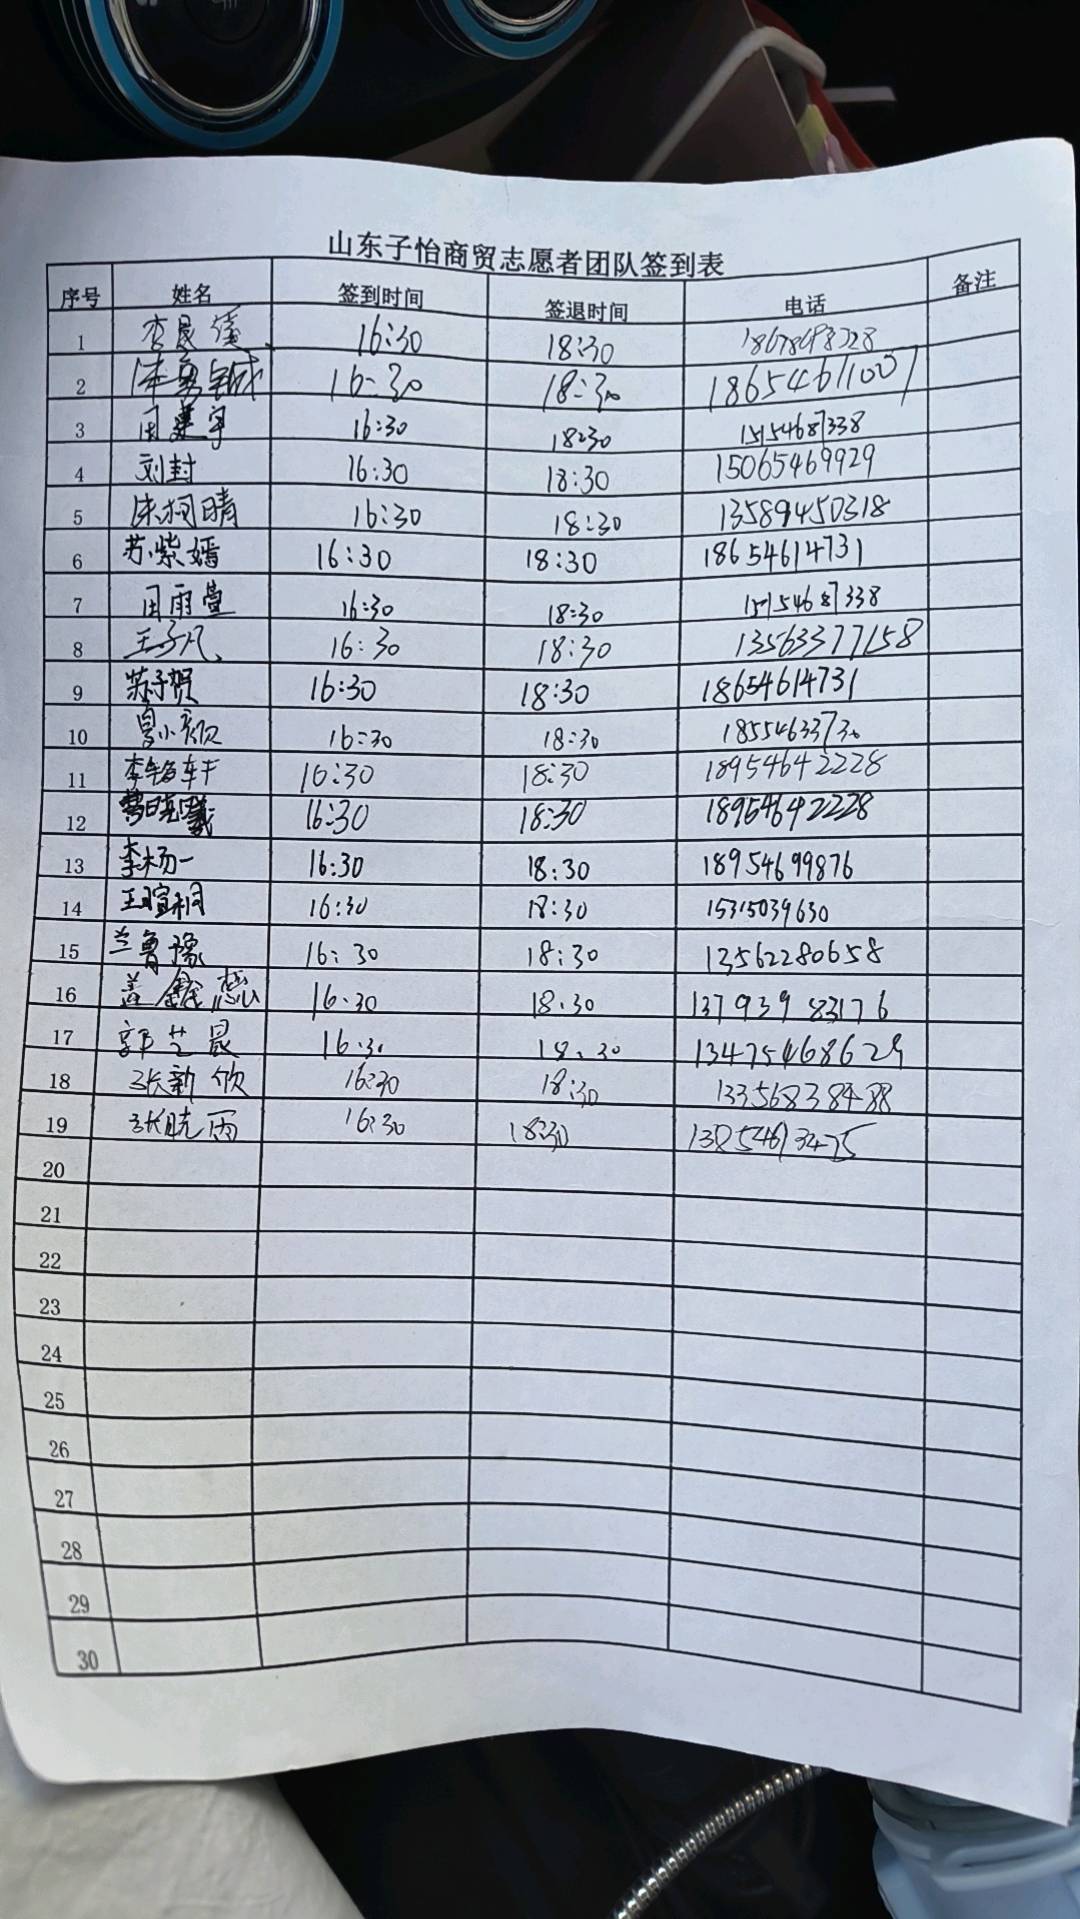 山东子怡商贸志愿者团队签到表
序号 姓名 签到时间 签退时间 电话 备注
1 李晟 16:30 18:30
2 16:30 18:30 18654611007
3 田建宇 16:30 18:30 15154687338
4 刘封 16:30 18:30 15065469929
5 朱柯晴 16:30 18:30 13589450318
6 苏紫嫣 16:30 18:30 18654614731
7 田雨萱 16:30 18:30 15154687338
8 王子凡 16:30 18:30 13563377158
9 苏子贺 16:30 18:30 18654614731
10 16:30 18:30 18554633730
11 16:30 18:30 18954642228
12 16:30 18:30 18954642228
13 李杨一 16:30 18:30 18954699876
14 王暄桐 16:30 18:30 15315039630
15 兰鲁豫 16:30 18:30 13562280658
16 盖 16:30 18:30 13793983176
17 郭芝晟 16:30 18:30 13475468629
18 张新欣 16:30 18:30 13356838488
19 张晓雨 16:30 18:30 13854613475
20
21
22
23
24
25
26
27
28
29
30